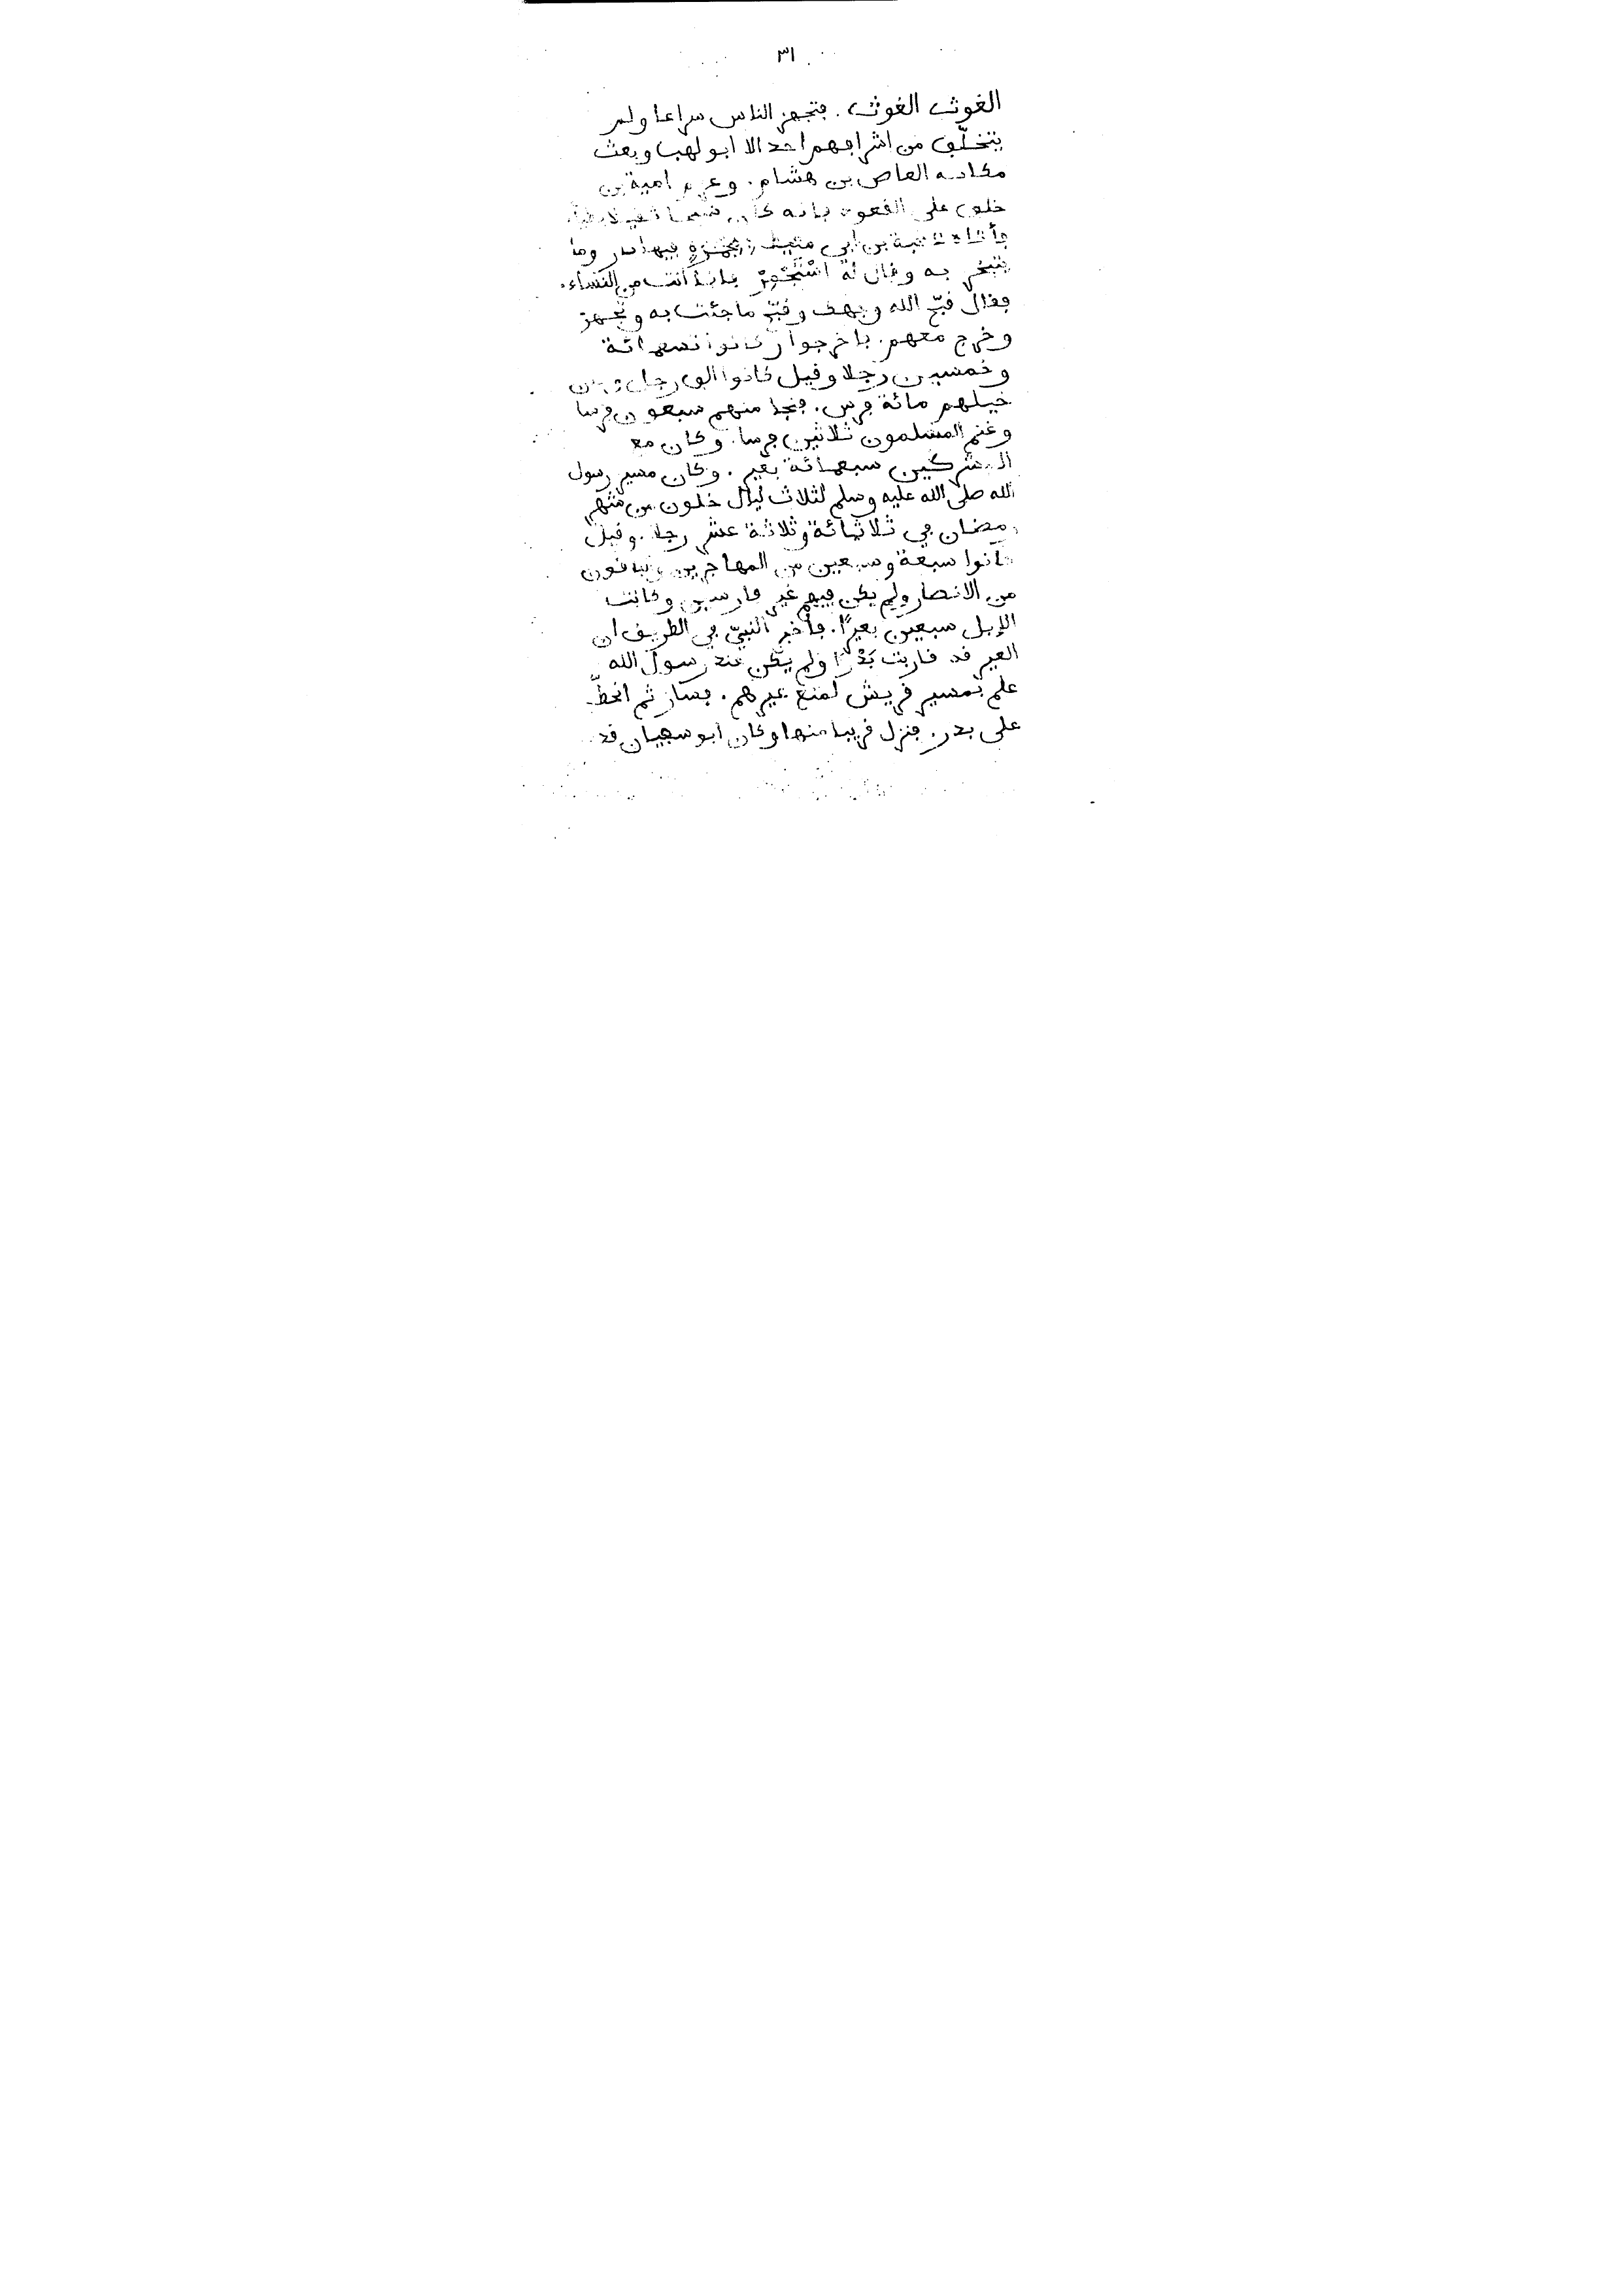 ٣١
الغوث الغوث. فتجهز الناس سراعا ولم
يتخلّف من اشرافهم احد الا ابو لهب وبعث
مكانه العاص بن هشام. وعزم امية بن
خلف على القعود فانه كان شيخا ثقيلا
فأتاه عقبة بن ابي معيط بمجمرة فيها نار وما
يتبخر به وقال له اسْتَجْمِرْ فانما انت من النساء.
فقال قبّح الله وجهك وقبّح ما جئت به وتجهز
وخرج معهم. فاخرجوا وكانوا تسعمائة
وخمسين رجلا وقيل كانوا الف رجل وكان
خيلهم مائة فرس. فنجا منهم سبعون فرسا
وغنم المسلمون ثلاثين فرسا. وكان مع
المشركين سبعمائة بعير. وكان مسير رسول
الله صلى الله عليه وسلم لثلاث ليال خلون من شهر
رمضان في ثلاثمائة وثلاثة عشر رجلا. وقيل
كانوا سبعة وسبعين من المهاجرين والباقون
من الانصار ولم يكن فيهم غير فارسين وكانت
الإبل سبعين بعيرًا. فأُخبر النبيّ في الطريق ان
العير قد قاربت بَدْرًا ولم يكن عند رسول الله
علم بمسير قريش لمنع عيرهم. فسار ثم انحطّ
على بدر. فنزل قريبا منها وكان ابو سفيان قد